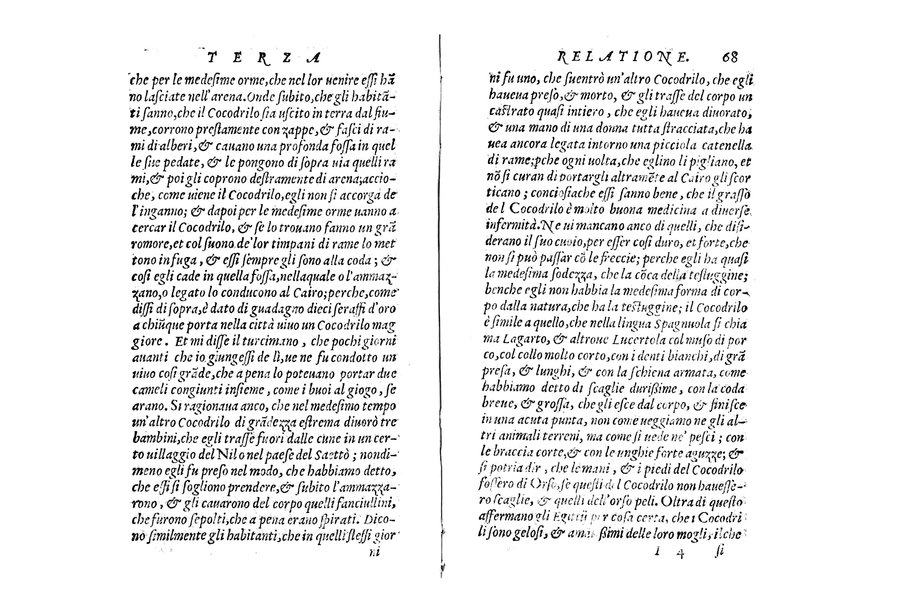 TERZA
che per le medesime orme,che nel lor uenire essi hã
no lasciate nell'arena.Onde subito,che gli habitã-
ti sanno,che il Cocodrilo sia uscito in terra dal fiu-
me,corrono prestamente con zappe,& fasci di ra-
mi di alberi, & cauano una profonda fossa in quel
le sue pedate, & le pongono di sopra uia quelli ra
mi,& poi gli coprono destramente di arena;accio-
che, come uiene il Cocodrilo,egli non si accorga de
l'inganno; & dapoi per le medesime orme uanno a
cercar il Cocodrilo, & se lo trouano fanno un grã
romore,et col suono de'lor timpani di rame lo met
tono in fuga , & essi sempre gli sono alla coda ; &
cosi egli cade in quella fossa,nellaquale o l'ammaz-
zano,o legato lo conducono al Cairo;perche,come
dissi di sopra,è dato di guadagno dieci seraffi d'oro
a chiũque porta nella città uiuo un Cocodrilo mag
giore. Et mi disse il turcimano , che pochi giorni
auanti che io giungessi de lì,ue ne fu condotto un
uiuo cosi grãde,che a pena lo poteuano portar due
cameli congiunti insieme , come i buoi al giogo , se
arano. Si ragionaua anco, che nel medesimo tempo
un'altro Cocodrilo di grãdezza estrema diuorò tre
bambini,che egli trasse fuori dalle cune in un cer-
to uillaggio del Nilo nel paese del Saettò ; nondi-
meno egli fu preso nel modo, che habbiamo detto,
che essi si sogliono prendere,& subito l'ammazza-
rono , & gli cauarono del corpo quelli fanciullini,
che furono sepolti,che a pena erano spirati. Dico-
no similmente gli habitanti,che in quelli stessi gior
ni
RELATIONE. 68
ni fu uno, che suentrò un'altro Cocodrilo, che egli
haueua preso,& morto, & gli trasse del corpo un
castrato quasi intiero , che egli haueua diuorato,
& una mano di una donna tutta stracciata,che ha
uea ancora legata intorno una picciola catenella
di rame;pche ogni uolta,che eglino li pigliano, et
nõ si curan di portargli altramẽte al Cairo gli scor
ticano ; conciosiache essi sanno bene , che il grasso
del Cocodrilo è molto buona medicina a diuerse
infermità. Ne ui mancano anco di quelli, che disi-
derano il suo cuoio,per esser cosi duro, et forte,che
non si può passar cõ le freccie; perche egli ha quasi
la medesima sodezza, che la cõca della testuggine;
benche egli non habbia la medesima forma di cor-
po dalla natura,che ha la testuggine; il Cocodrilo
è simile a quello,che nella lingua Spagnuola si chia
ma Lagarto, & altroue Lucertola col muso di por
co,col collo molto corto,con i denti bianchi,di grã
presa, & lunghi, & con la schiena armata, come
habbiamo detto di scaglie durissime, con la coda
breue, & grossa, che gli esce dal corpo, & finisce
in una acuta punta, non come ueggiamo ne gli al-
tri animali terreni, ma come si uede ne' pesci ; con
le braccia corte,& con le unghie forte aguzze; &
si potria dir , che le mani , & i piedi del Cocodrilo
fossero di Orso, se questi del Cocodrilo non hauesse-
ro scaglie, & quelli dell'orso peli. Oltra di questo
affermano gli Egittij per cosa certa, che i Cocodri
li sono gelosi, & amantissimi delle loro mogli, il che
I 4 si